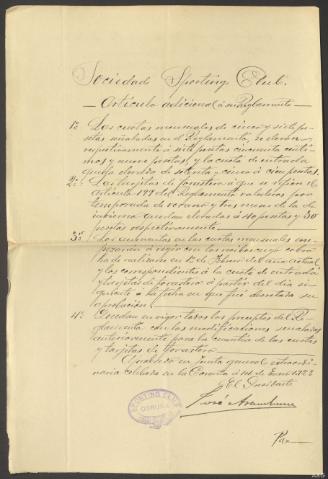 Sociedad Sporting Club.
Artículo adicional á su Reglamento
1º Las cuotas mensuales de cinco y siete pe-
setas señaladas en el Reglamento, se elevan
respectivamente á siete pesetas cincuenta cénti-
mos y nueve pesetas, y la cuota de entrada
queda elevada de setenta y cinco á cien pesetas.
2º Las tarjetas de forastero á que se refiere el
artículo 199 del Reglamento valederas por
temporada de verano y tres meses la de
invierno quedan elevadas á 40 pesetas y 30
pesetas respectivamente.
3º Los aumentos en las cuotas mensuales em-
pezarán á regir con los recibos cuyo cobro
ha de realizarse en 1º de Febrero del año actual
y los correspondientes á la cuota de entrada
y tarjetas de forastero á partir del día si-
guiente á la fecha en que fué decretada su
aprobación.
4º Quedan en vigor todos los preceptos del Re-
glamento con las modificaciones señaladas
anteriormente para la cuantía de las cuotas
y tarjetas de forastero.
Aprobado en junta general extraordi-
naria celebrada en la Coruña á 14 de Enero
El Presidente
José
SPORTING CLUB
CORUÑA